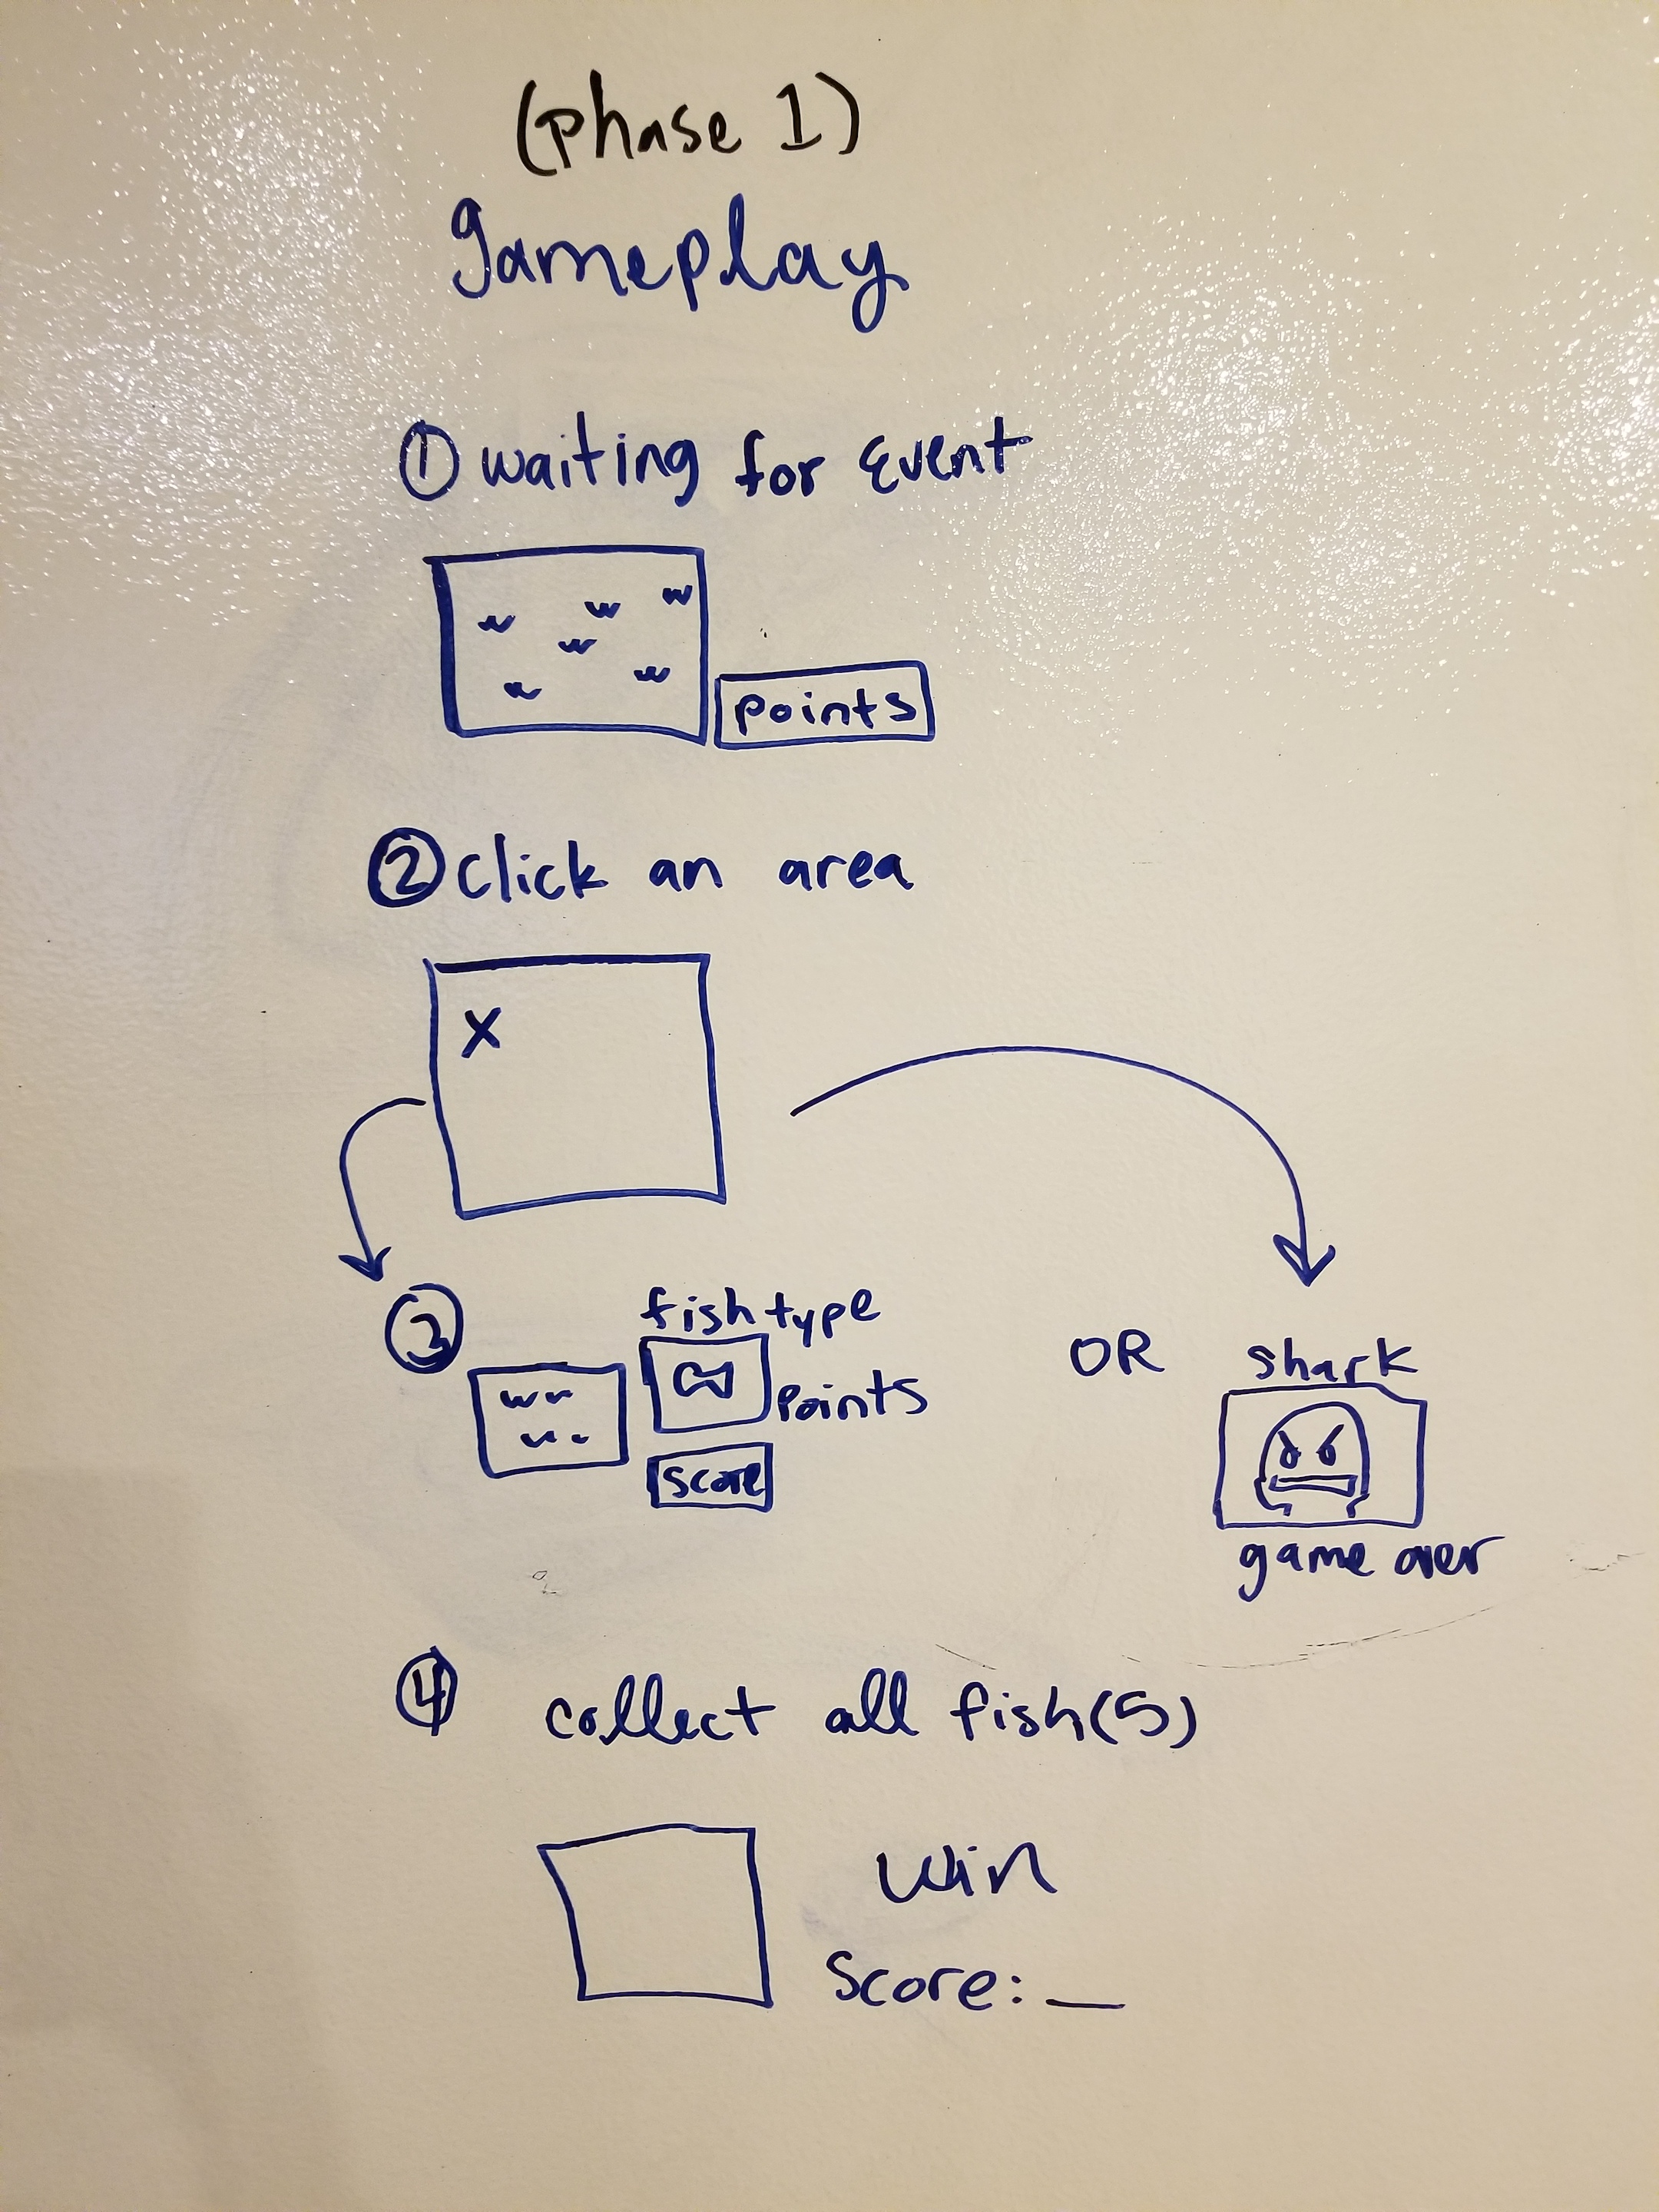 (phase 1)
gameplay
① waiting for Event
points
② click an area
X
③
fish type
points
score
OR
shark
game over
④ collect all fish(5)
win
Score: __